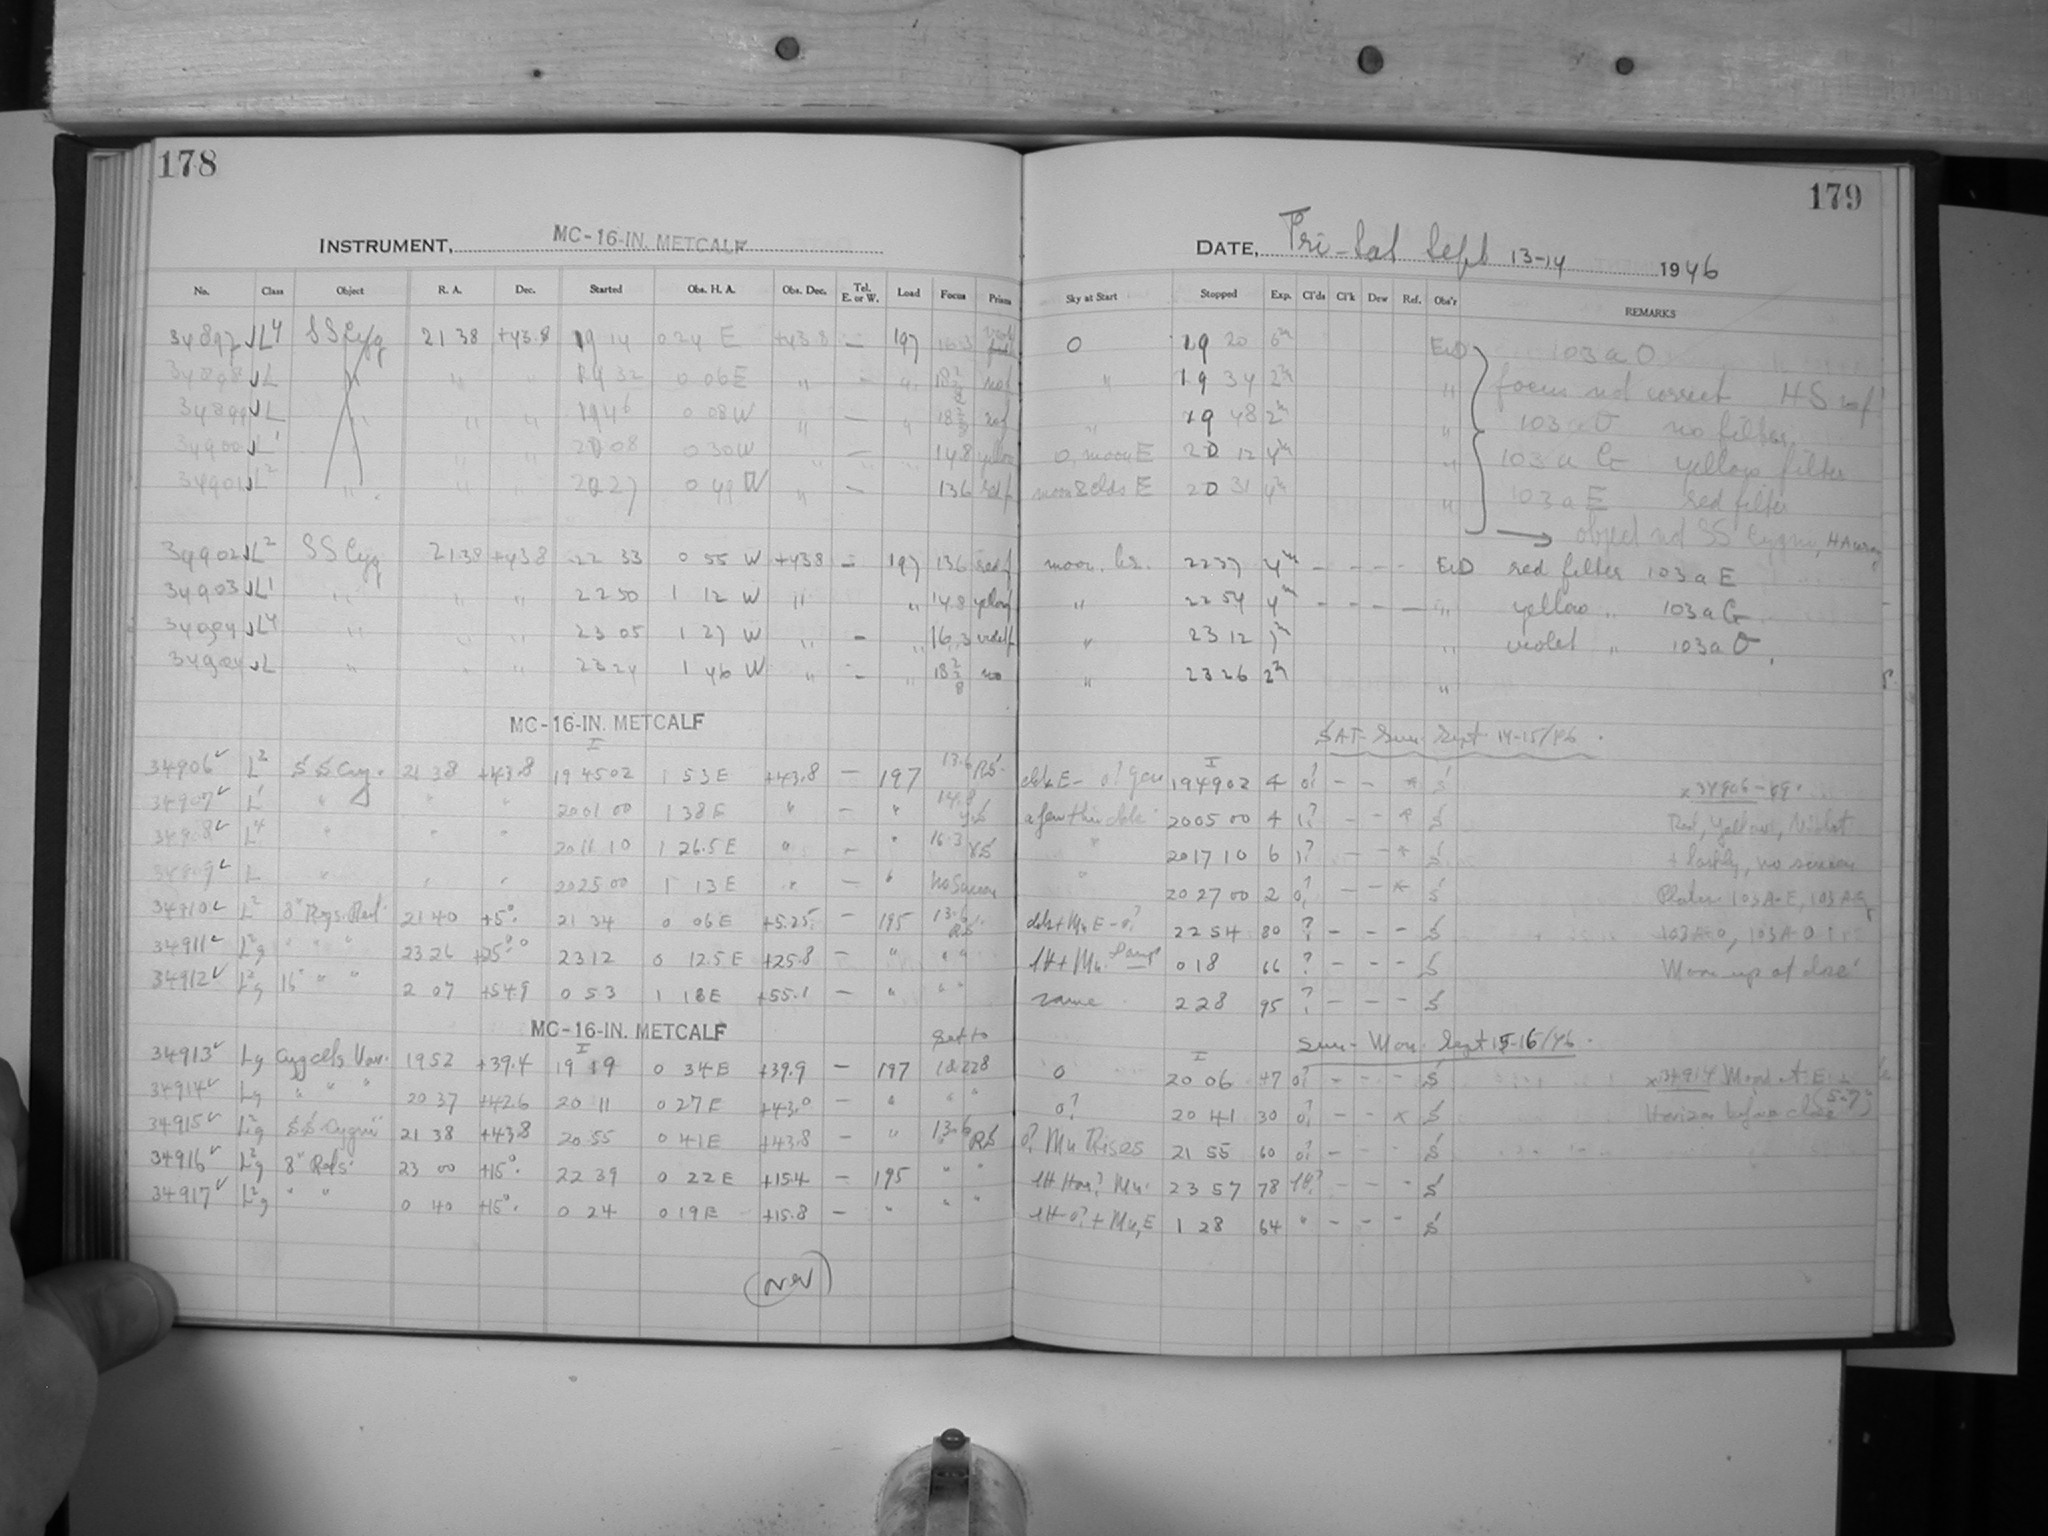 178
179
INSTRUMENT, MC-16-IN. METCALF
DATE, Fri-Sat Sept 13-14 1946
No. Class Object R. A. Dec. Started Obs. H. A. Obs. Dec. Tel. E. or W. Load Focus Prism Sky at Start Stopped Exp. Cl'ds Cl'k Dew Ref. Obs'r REMARKS
34897 L4 SS Cyg 21 38 +43.8 19 14 0 24 E +43.8 — 197 16.3 0 19 20 6m EWD 103aO
34898 L " " " 19 32 0 06 E " - " 18 2/8 no f " 19 34 2m " focus not correct HS
34899 L " " " 19 46 0 08 W " — " 18 2/8 no f " 19 48 2m " 103aO no filter
34900 L1 " " " 20 08 0 30 W " — " 14.8 yellow 0, moon E 20 12 4m " 103aG yellow filter
34901 L2 " " " 20 27 0 49 W " — 136 red f moon & clds E 20 31 4m " 103aE red filter
→ object not SS Cygni,
34902 L2 SS Cyg 21 38 +43.8 22 33 0 55 W +438 - 197 136 red f moon, hz. 22 37 4m - - - - EWD red filter 103aE
34903 L1 " " " 22 50 1 12 W " " 14.8 yellow " 22 54 4m - - - - " yellow " 103aG
34904 L4 " " " 23 05 1 27 W " - " 16.3 violet f " 23 12 7m " violet " 103aO
L " " " 23 24 1 46 W " - " 18 2/8 no " 23 26 2m "
MC-16-IN. METCALF
SAT-Sun. Sept 14-15/46.
34906 L2 SS Cyg. 21 38 +43.8 19 45 02 1 53 E +43.8 — 197 13.6 RS 19 49 02 4 0? - - * S x34906-09.
34907 L1 " " " 20 01 00 1 38 E " — " 14.8 YS a few thin clds 20 05 00 4 1? - - * S Red, Yellow, Violet
34908 L4 " " " 20 11 10 1 26.5 E " — " 16.3 VS " 20 17 10 6 1? - - * S + lastly, no screen
34909 L " " " 20 25 00 1 13 E " — " No Screen " 20 27 00 2 0? - - * S Plates 103A-E, 103A-G
34910 L2 8" Regs. Red 21 40 +5° 21 34 0 06 E +5.25 — 195 13.6 RS clds + Mn E - 0? 22 54 80 ? - - - S 103A-O, 103A-O
34911 L2g " " " 23 26 +25° 23 12 0 12.5 E +25.8 — " " " 0 18 66 ? - - - S Moon up at close
34912 L2g 16" " " 2 07 +54.9 0 53 1 18 E +55.1 — " " " same 2 28 95 ? - - - S
MC-16-IN. METCALF
Sun-Mon. Sept 15-16/46.
Set to
34913 Lg Cyg clds Var. 19 52 +39.4 19 19 0 34 E +39.9 — 197 18.228 0 20 06 47 0? - - - S x34914 Moon at E.
34914 Lg " " " 20 37 +42.6 20 11 0 27 E +43.0 — " " " 0? 20 41 30 0? - - * S Horizon before close
34915 L2g SS Cygni 21 38 +43.8 20 55 0 41 E +43.8 — " 13.6 RS 0? Mn Rises 21 55 60 0? - - - S
34916 L2g 8" Reds 23 00 +15° 22 39 0 22 E +15.4 — 195 " " 23 57 78 - - - S
34917 L2g " " 0 40 +15° 0 24 0 19 E +15.8 — " " " 1 28 64 " - - - S